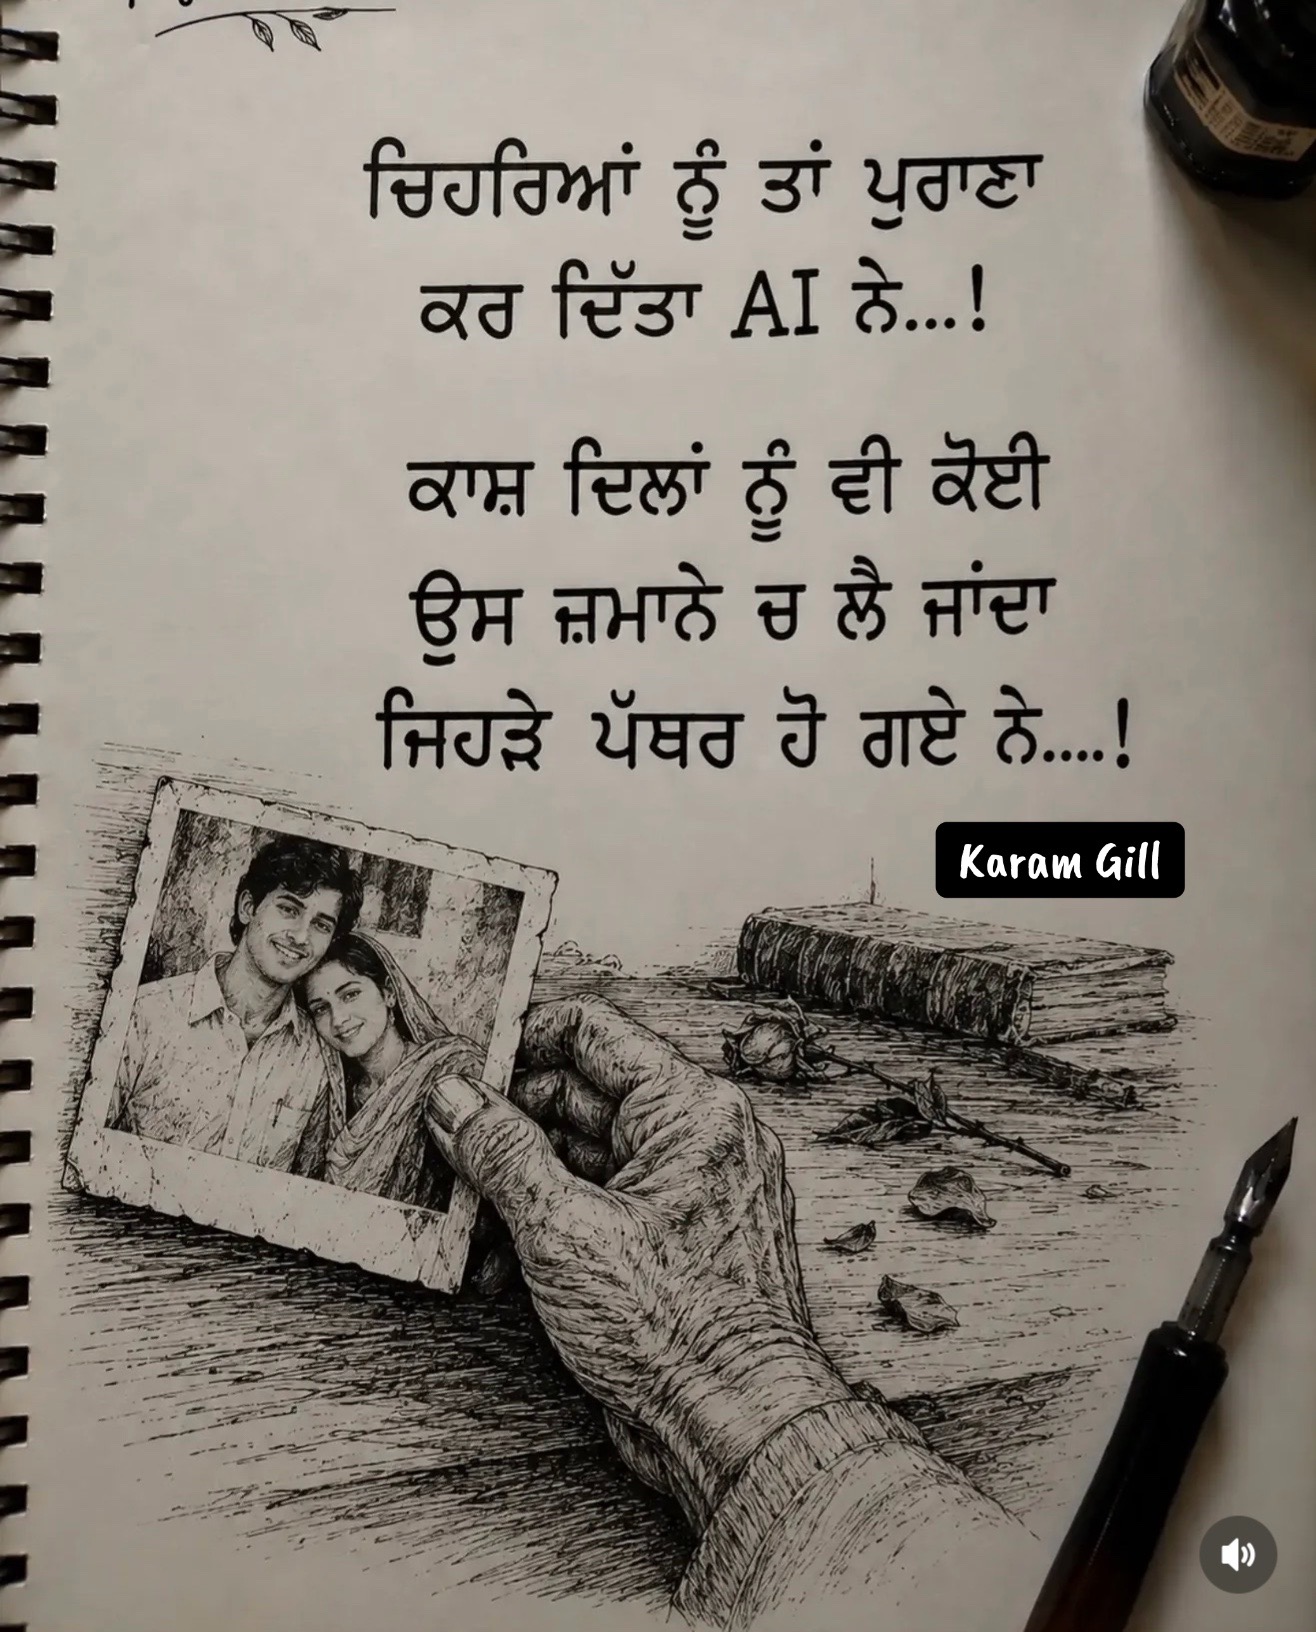 ਚਿਹਰਿਆਂ ਨੂੰ ਤਾਂ ਪੁਰਾਣਾ
ਕਰ ਦਿੱਤਾ AI ਨੇ...!
ਕਾਸ਼ ਦਿਲਾਂ ਨੂੰ ਵੀ ਕੋਈ
ਉਸ ਜ਼ਮਾਨੇ ਚ ਲੈ ਜਾਂਦਾ
ਜਿਹੜੇ ਪੱਥਰ ਹੋ ਗਏ ਨੇ....!
Karam Gill